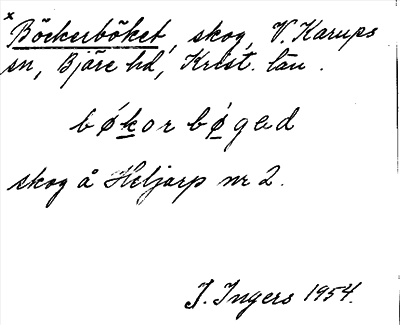 x
Böckerböket, skog, V. Karups
sn, Bjäre hd, Krist. län.
bøkor bøgəd
skog å Heljarp nr 2.
I. Ingers 1954.